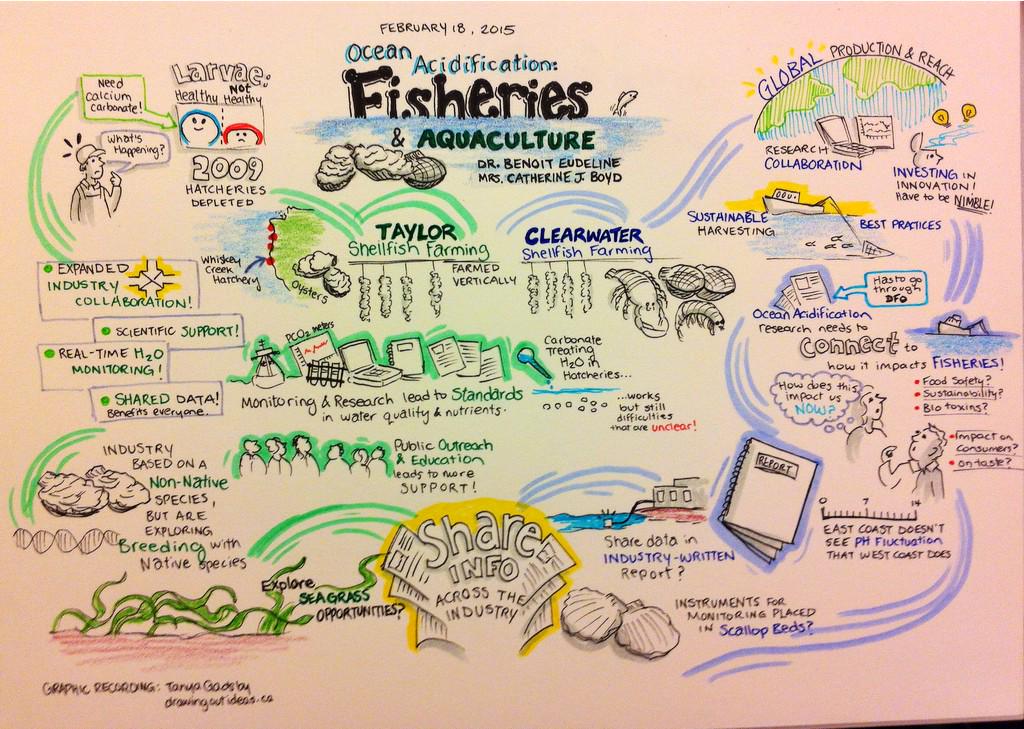 FEBRUARY 18, 2015
Ocean
Acidification:
Fisheries
& AQUACULTURE
DR. BENOIT EUDELINE
MRS. CATHERINE J BOYD
Need
calcium
carbonate!
What's
Happening?
Larvae:
Healthy NOT Healthy
2009
HATCHERIES
DEPLETED
Whiskey
Creek
Hatchery
Oysters
TAYLOR
Shellfish Farming
FARMED
VERTICALLY
EXPANDED
INDUSTRY
COLLABORATION!
SCIENTIFIC SUPPORT!
REAL-TIME H2O
MONITORING!
SHARED DATA!
Benefits everyone.
PCO2 meters
Monitoring & Research lead to Standards
in water quality & nutrients.
Carbonate
Treating
H2O in
Hatcheries...
...works
but still
difficulties
that are unclear!
INDUSTRY
BASED ON A
Non-Native
SPECIES,
BUT ARE
EXPLORING
Breeding with
Native species
Public Outreach
& Education
leads to more
SUPPORT!
Explore
SEAGRASS
OPPORTUNITIES?
Share
INFO
ACROSS THE
INDUSTRY
CLEARWATER
Shellfish Farming
GLOBAL PRODUCTION & REACH
RESEARCH
COLLABORATION
INVESTING IN
INNOVATION!
Have to be NIMBLE!
SUSTAINABLE
HARVESTING
BEST PRACTICES
Has to go
through
DFO
Ocean Acidification
research needs to
connect to
how it impacts FISHERIES!
Food Safety?
Sustainability?
Bio toxins?
How does this
impact us
NOW?
Impact on
consumers?
on taste?
REPORT
0 7 14
EAST COAST DOESN'T
SEE PH Fluctuation
THAT WEST COAST DOES
Share data in
INDUSTRY-WRITTEN
Report?
INSTRUMENTS FOR
MONITORING PLACED
IN Scallop Beds?
GRAPHIC RECORDING: Tanya Gadsby
drawingoutideas.ca